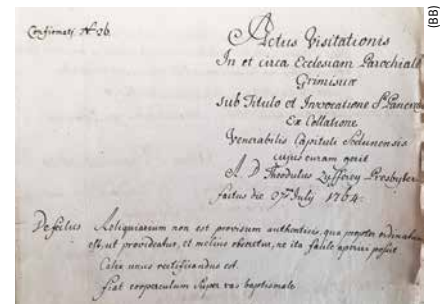 Confirmati N° 26.
Actus Visitationis
In et circa Ecclesiam Parochialē
Grimisuæ
sub Titulo et Invocatione S.
Ex Collatione
Venerabilis Capituli Sedunensis
cujus curam gerit
A. D Theodulus Zufferey Presbyter
factus die 07 July 1764.
Defectus Reliquiarium non est provisum authenticis, qua propter ordinatum
est, ut provideatur, et melius obseretur, ne ita facile aperiri possit
Calix unus rectificandus est.
fiat cooperculum super vas baptismale
(BB)